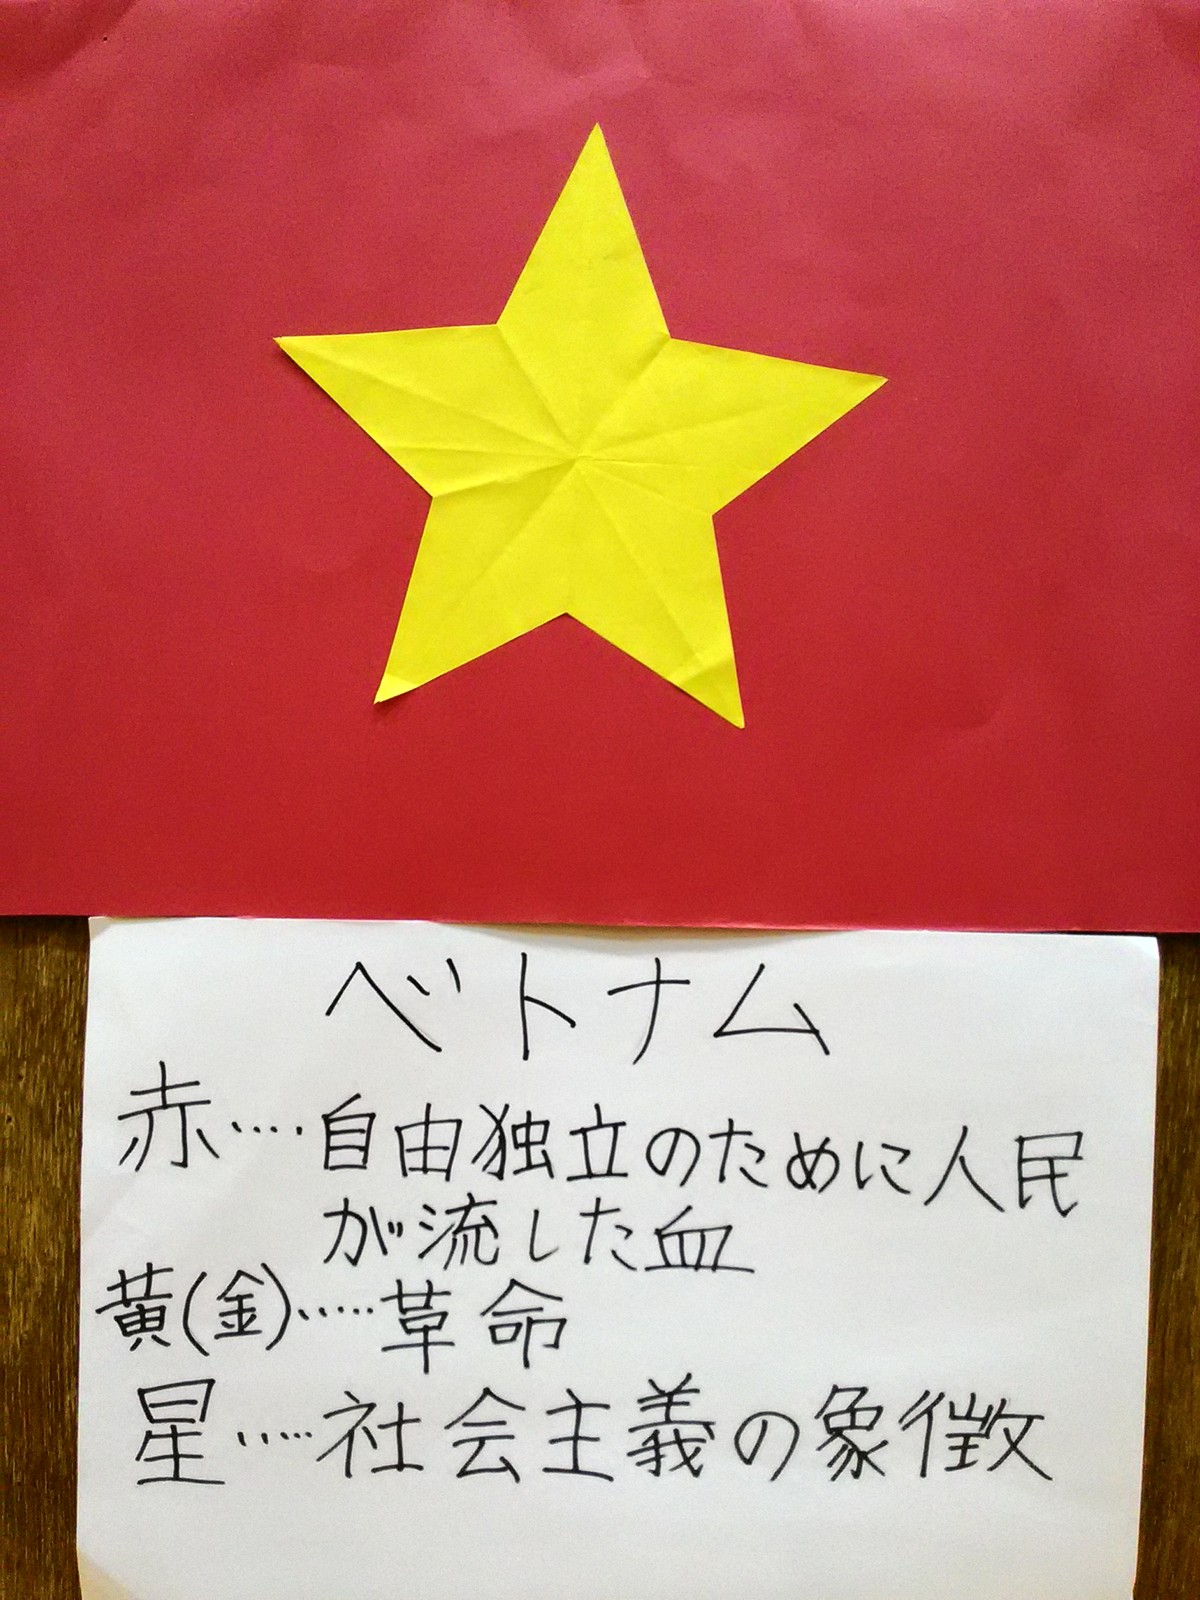 ベトナム
赤‥‥自由独立のために人民
が流した血
黄(金)‥‥‥革命
星‥‥‥社会主義の象徴